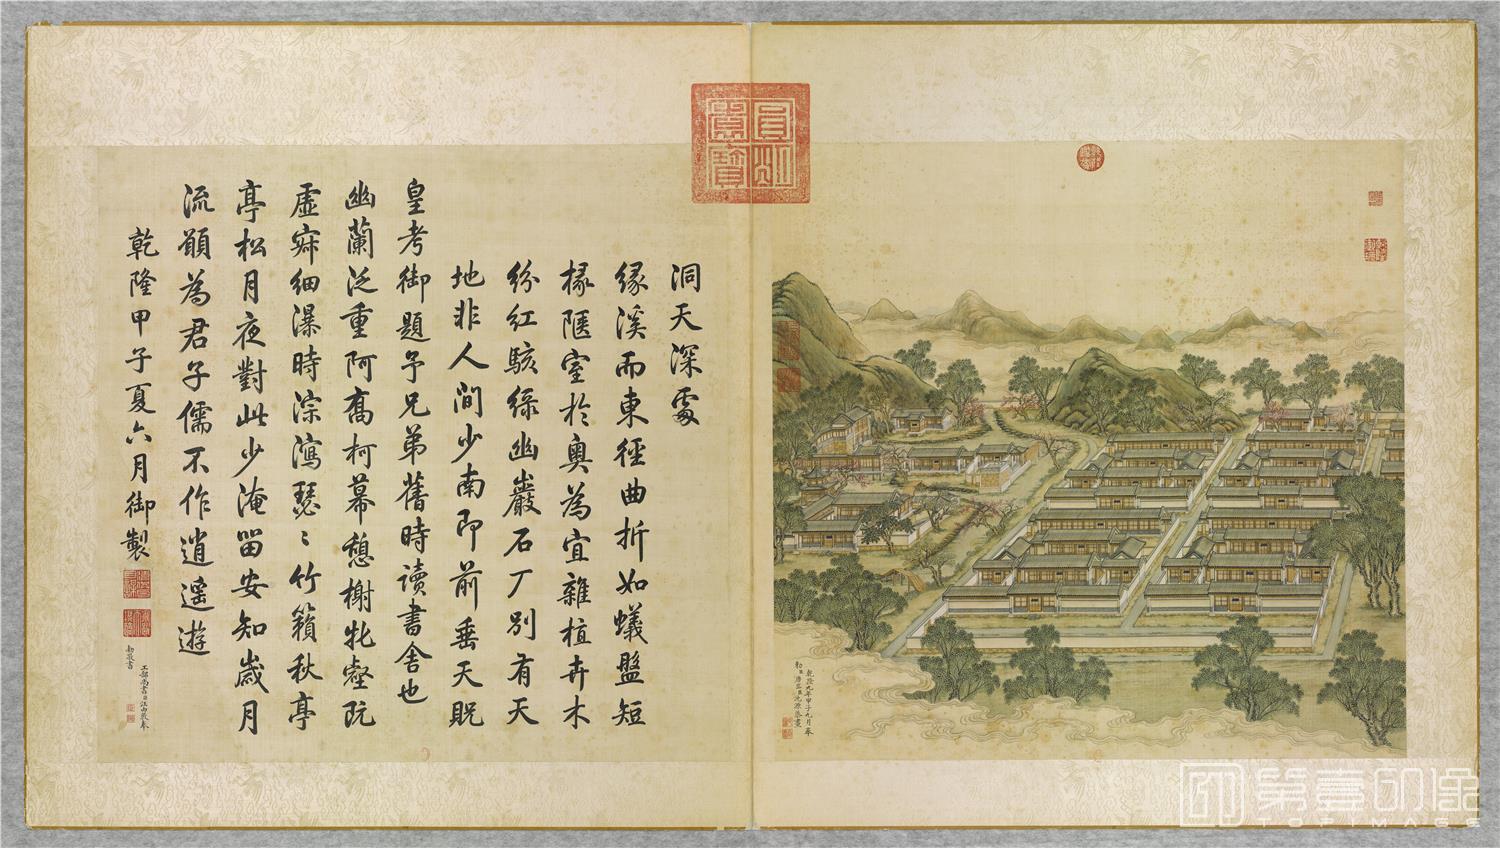 圓明園寶
洞天深處
緣溪而東徑曲折如蟻盤短
椽陋室於奧為宜雜植卉木
紛紅駭綠幽巖石厂別有天
地非人間少南即前垂天貺
皇考御題予兄弟舊時讀書舍也
幽蘭泛重阿喬柯幕憩榭牝壑既
虛寂細瀑時淙瀉瑟〻竹籟秋亭
亭松月夜對此少淹留安知歲月
流願為君子儒不作逍遙遊
乾隆甲子夏六月御製
工部尚書臣汪由敦奉
勅敬書
乾隆九年甲子九月奉
勅臣唐岱臣沈源恭畫
第壹印像
TOPIMAGE